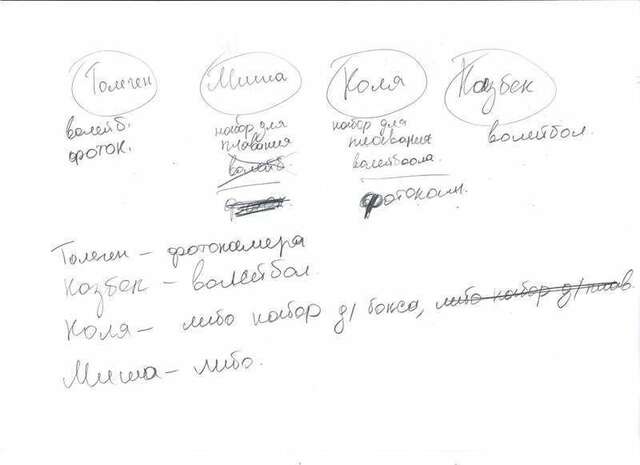 Толеген Миша Коля Казбек
волейб. набор для набор для волейбол.
фоток. плавания плавания
волейб волейбола
фотокам.
Толеген – фотокамера
Казбек – волейбол
Коля – либо набор д/ бокса, либо набор д/ плав.
Миша – либо.